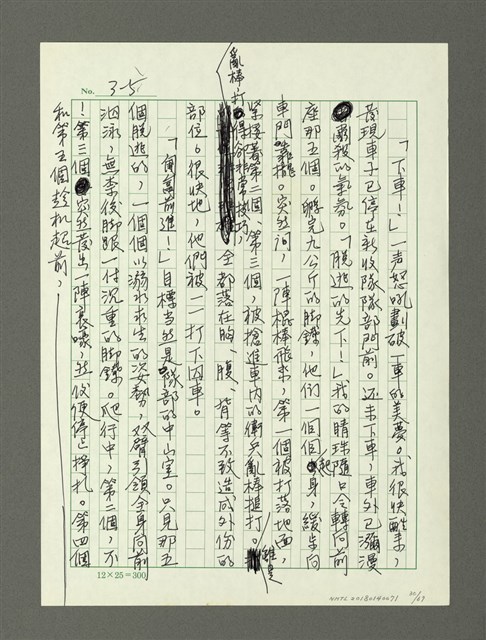 No. 35
「下車!」一声怒吼劃破一車的美夢。我很快醒来,
發現車子已停在新收隊隊部門前。还未下車,車外已瀰漫
肅殺的氣氛。「脱逃的先下!」我的睛珠隨口令轉向前
座那五個。獬完九公斤的脚鐐,他们一個個起身,緩步向
車門靠攏。突然间,一陣棍棒飛来,第一個被打落地面,
緊接著第二個、第三個,被搶進車内的衛兵亂棒搥打。雖是
亂棒打得卻非常技巧,全都落在胸、腹、背等不致造成外伤的
部位。很快地,他們被一一打下囚車。
「匍匐前進!」目標当然是隊部的中山室。只見那五
個脱逃的,一個個以溺水求生的姿勢,双臂引領全身向前
泅泳,無奈後脚跟一付沉重的脚鐐。爬行中,第二個,不
!第三個突然發出一陣哀嚎,然後便停已掙扎。第四個
和第五個趁机超前,
12×25=300
NMTL20180140071
30/69